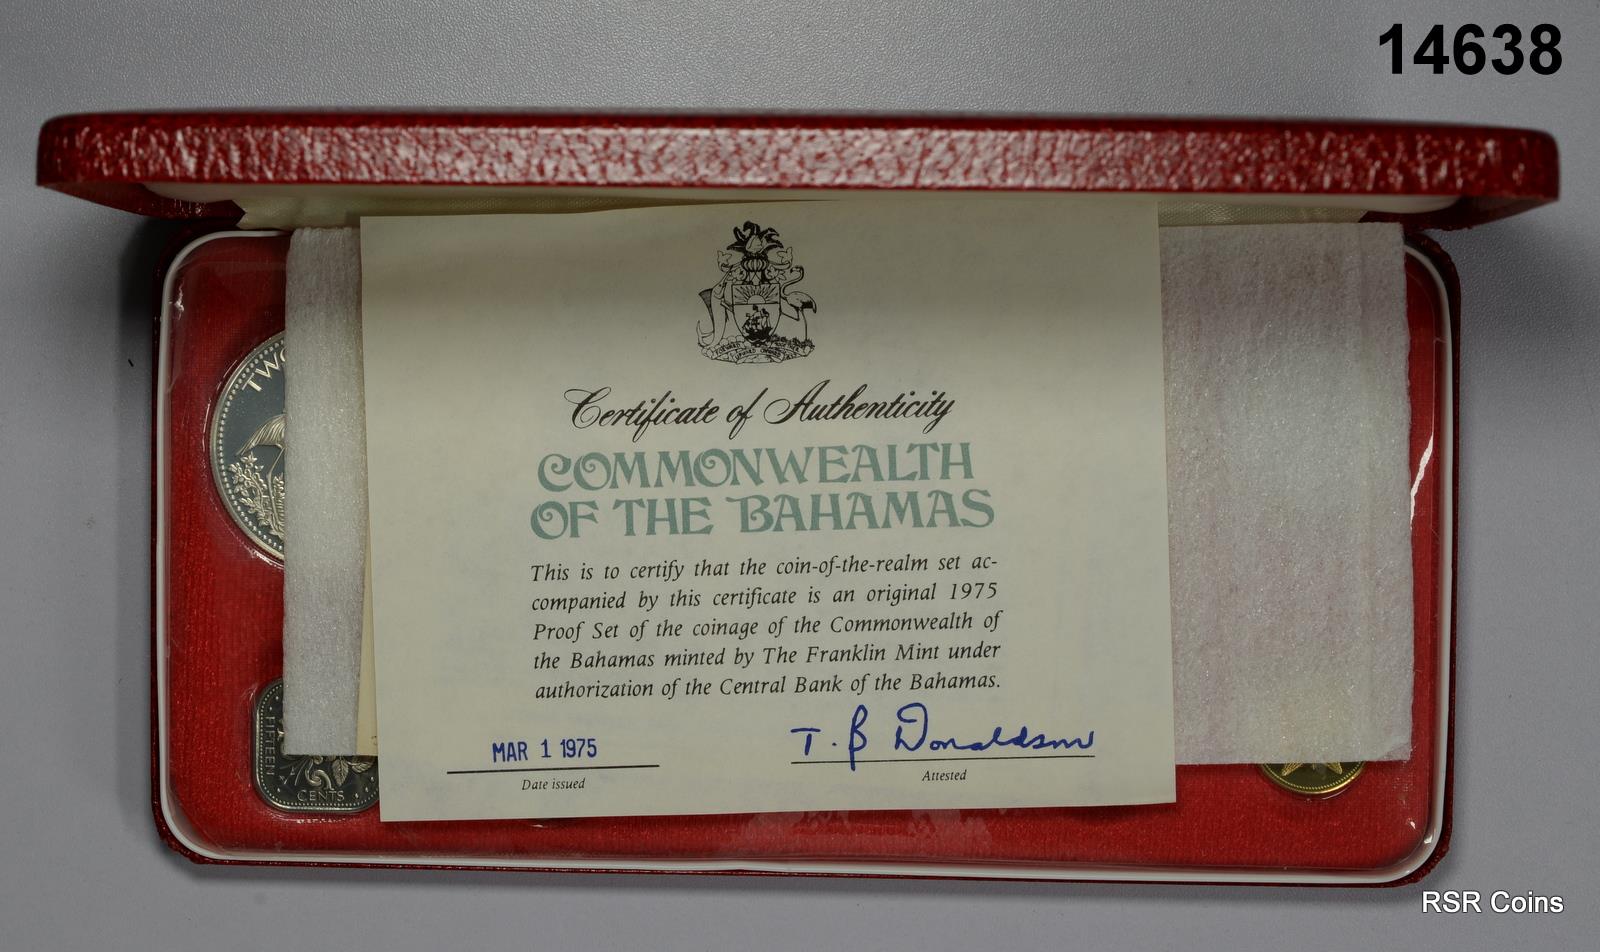 14638
TWO
Certificate of Authenticity
COMMONWEALTH
OF THE BAHAMAS
This is to certify that the coin-of-the-realm set ac-
companied by this certificate is an original 1975
Proof Set of the coinage of the Commonwealth of
the Bahamas minted by The Franklin Mint under
authorization of the Central Bank of the Bahamas.
MAR 1 1975
Date issued
T. B Donaldson
Attested
FIFTEEN
CENTS
RSR Coins